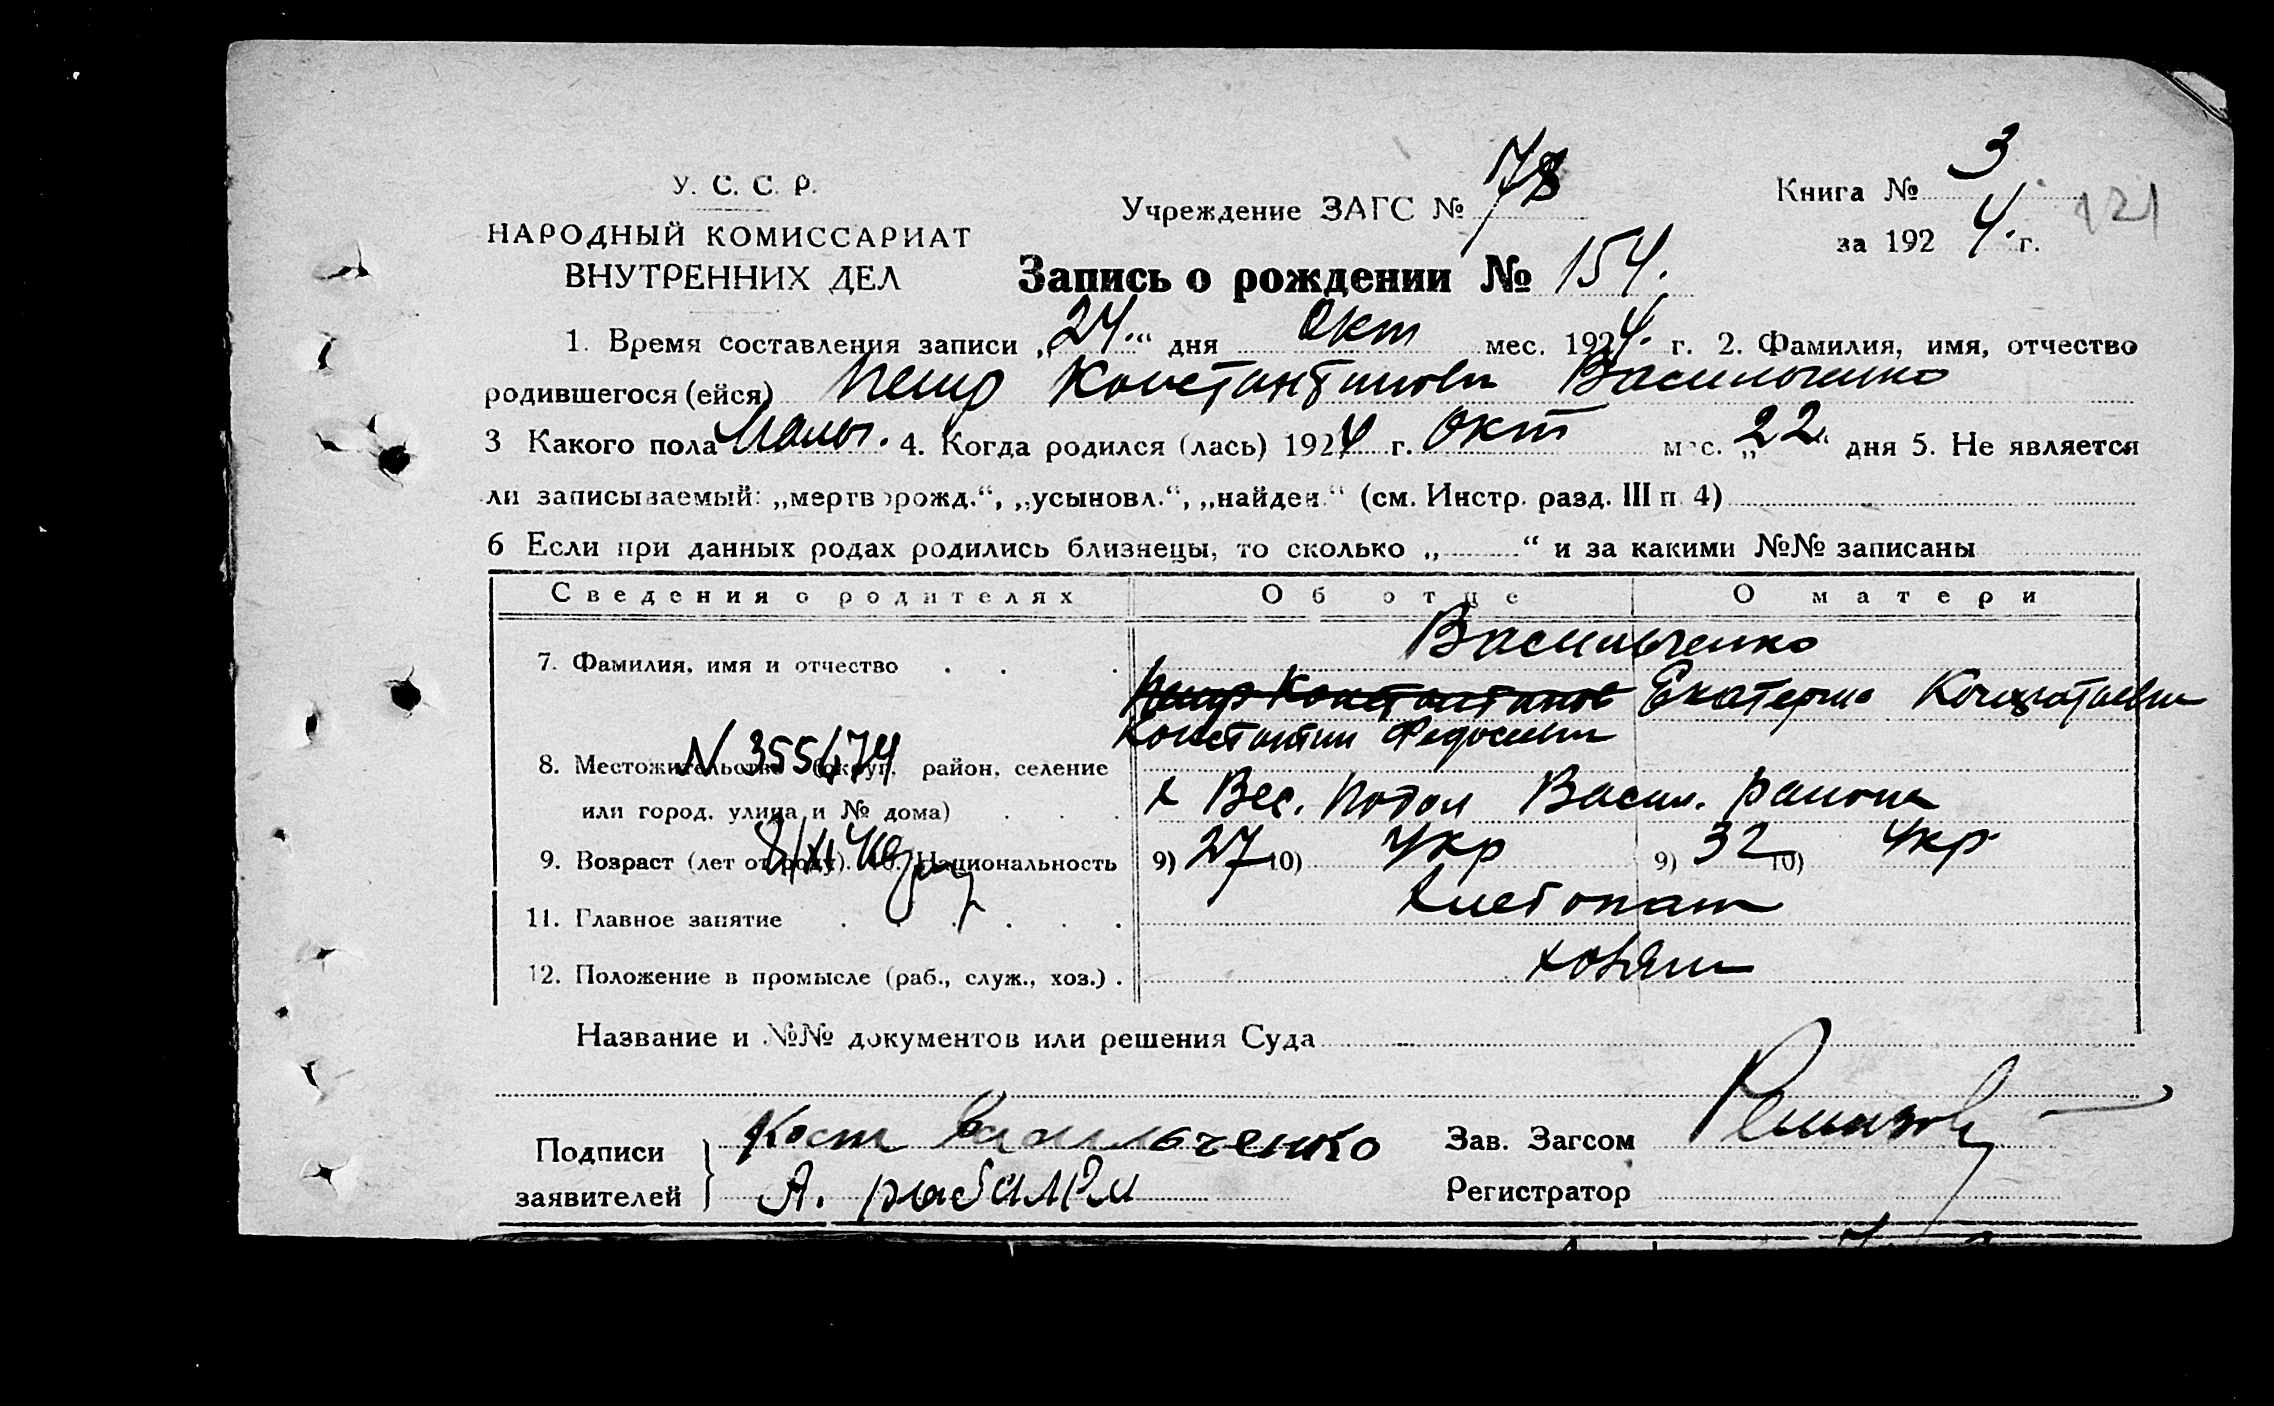 У. С. С. Р.
НАРОДНЫЙ КОМИССАРИАТ
ВНУТРЕННИХ ДЕЛ
Учреждение ЗАГС № 78
Книга № 3
за 192 4. г.
121
Запись о рождении № 154.
1. Время составления записи „24.“ дня Окт мес. 1924. г. 2. Фамилия, имя, отчество
родившегося (ейся) Петр Константинови Васильченко
3 Какого пола 4. Когда родился (лась) 1924 г. Окт мес. „22“ дня 5. Не является
ли записываемый: „мертворожд.“, „усыновл.“, „найден.“ (см. Инстр. разд. III п. 4)
6 Если при данных родах родились близнецы, то сколько „ “ и за какими №№ записаны
Сведения о родителях Об отце О матери
7. Фамилия, имя и отчество Васильченко
Петр Константинов Екатерина
Константин Федосеевич
N 355474
8. Местожительство (округ, район, селение
или город, улица и № дома) х Вес. Подол Васил. района
9. Возраст (лет от роду). 10. Национальность 9) 27 10) Укр 9) 32 10) Укр
11. Главное занятие Хлебопаш
12. Положение в промысле (раб., служ., хоз.) хозяин
Название и №№ документов или решения Суда
Подписи
заявителей
Кост Васильченко
А.
Зав. Загсом
Регистратор